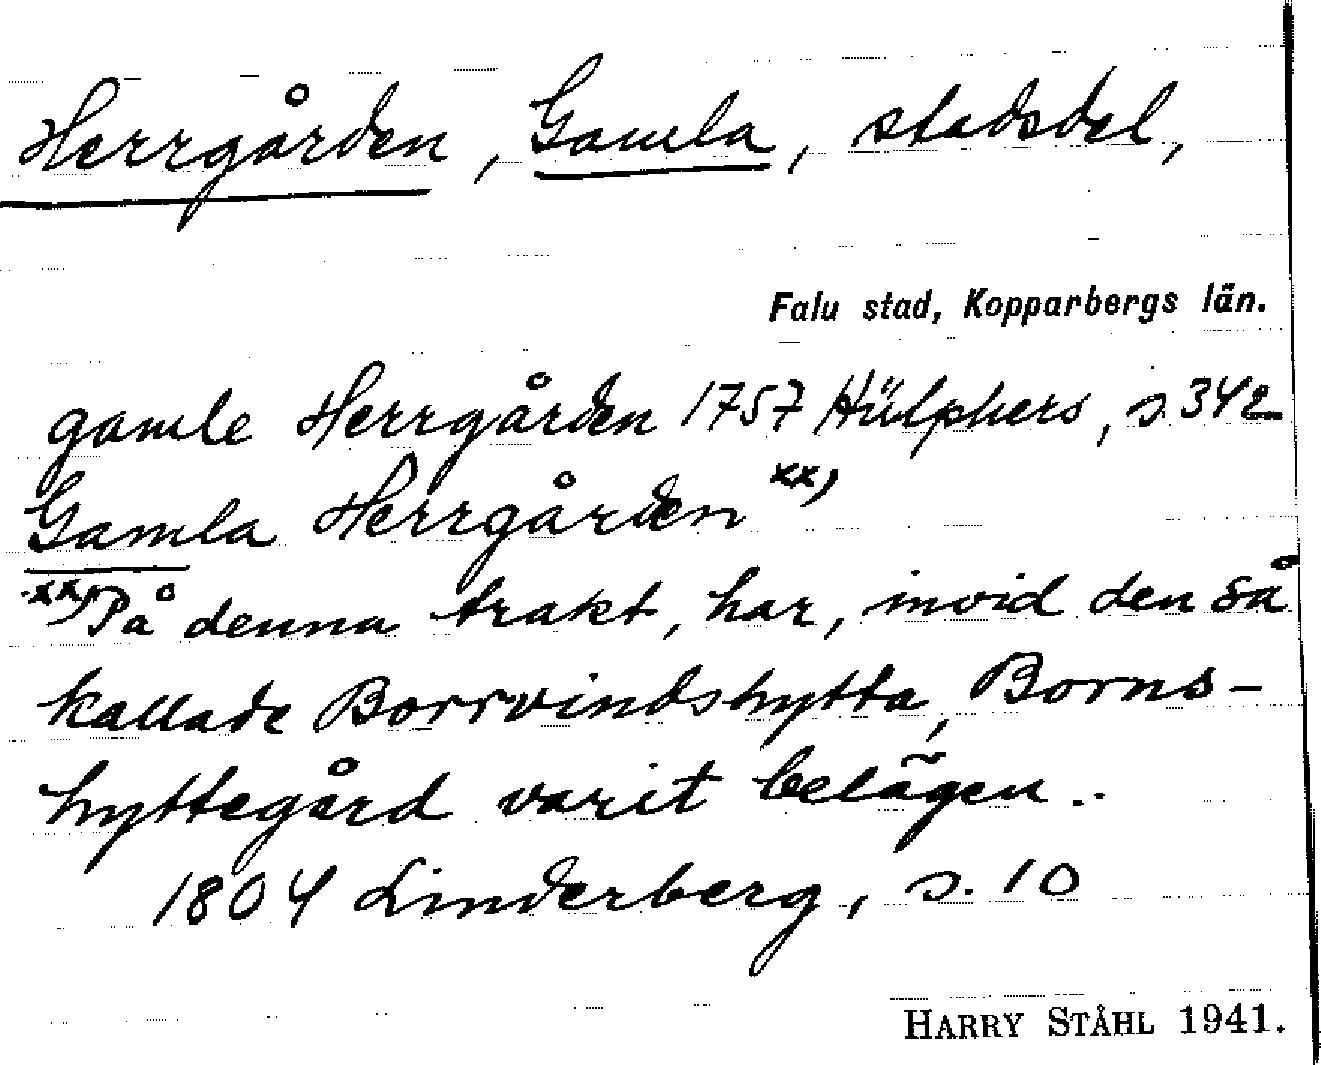 Herrgården, Gamla, stadsdel,
Falu stad, Kopparbergs län.
gamle Herrgården 1757 Hülphers, s. 342
Gamla Herrgården xx)
xx) På denna trakt, har, invid den så
kallade Borrvindshytta, Borns-
hyttegård varit belägen..
1804 Linderberg, s. 10
HARRY STÅHL 1941.